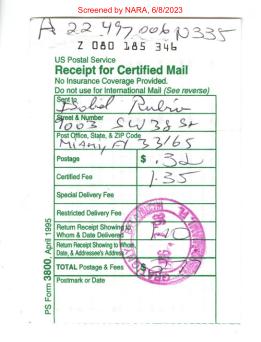 Screened by NARA, 6/8/2023
A 22 497 006 N335
Z 080 185 346
US Postal Service
Receipt for Certified Mail
No Insurance Coverage Provided.
Do not use for International Mail (See reverse)
Sent to
Isabel Rubio
Street & Number
9003 SW 38 St
Post Office, State, & ZIP Code
Miami, FL 33165
Postage $ .32
Certified Fee 1.35
Special Delivery Fee
Restricted Delivery Fee
Return Receipt Showing to Whom & Date Delivered 1.10
Return Receipt Showing to Whom, Date, & Addressee's Address
TOTAL Postage & Fees $
Postmark or Date
PS Form 3800, April 1995